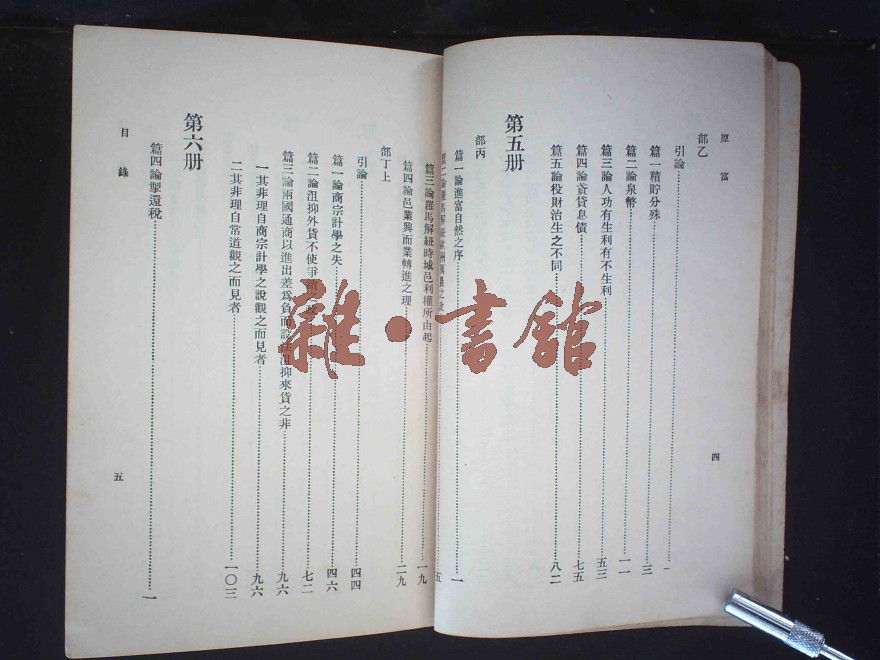 原富
部乙
引論 一
篇一精貯分殊 三
篇二論泉幣 一一
篇三論人功有生利有不生利 五三
篇四論貣貸息債 七五
篇五論役財治生之不同 八二
第五册
部丙
篇一論進富自然之序 一
五
四
篇三論羅馬解紐時城邑利權所由起 一九
篇四論邑業興而業轉進之理 二九
部丁上
引論 四四
篇一論商宗計學之失 四六
篇二論沮抑外貨不使爭銷之政 七二
篇三論兩國通商以進出差為負而設法沮抑來貨之非 九六
一其非理自商宗計學之說觀之而見者 九六
二其非理自常道觀之而見者 一〇三
第六册
篇四論掣還稅 一
目錄
五
雜·書館